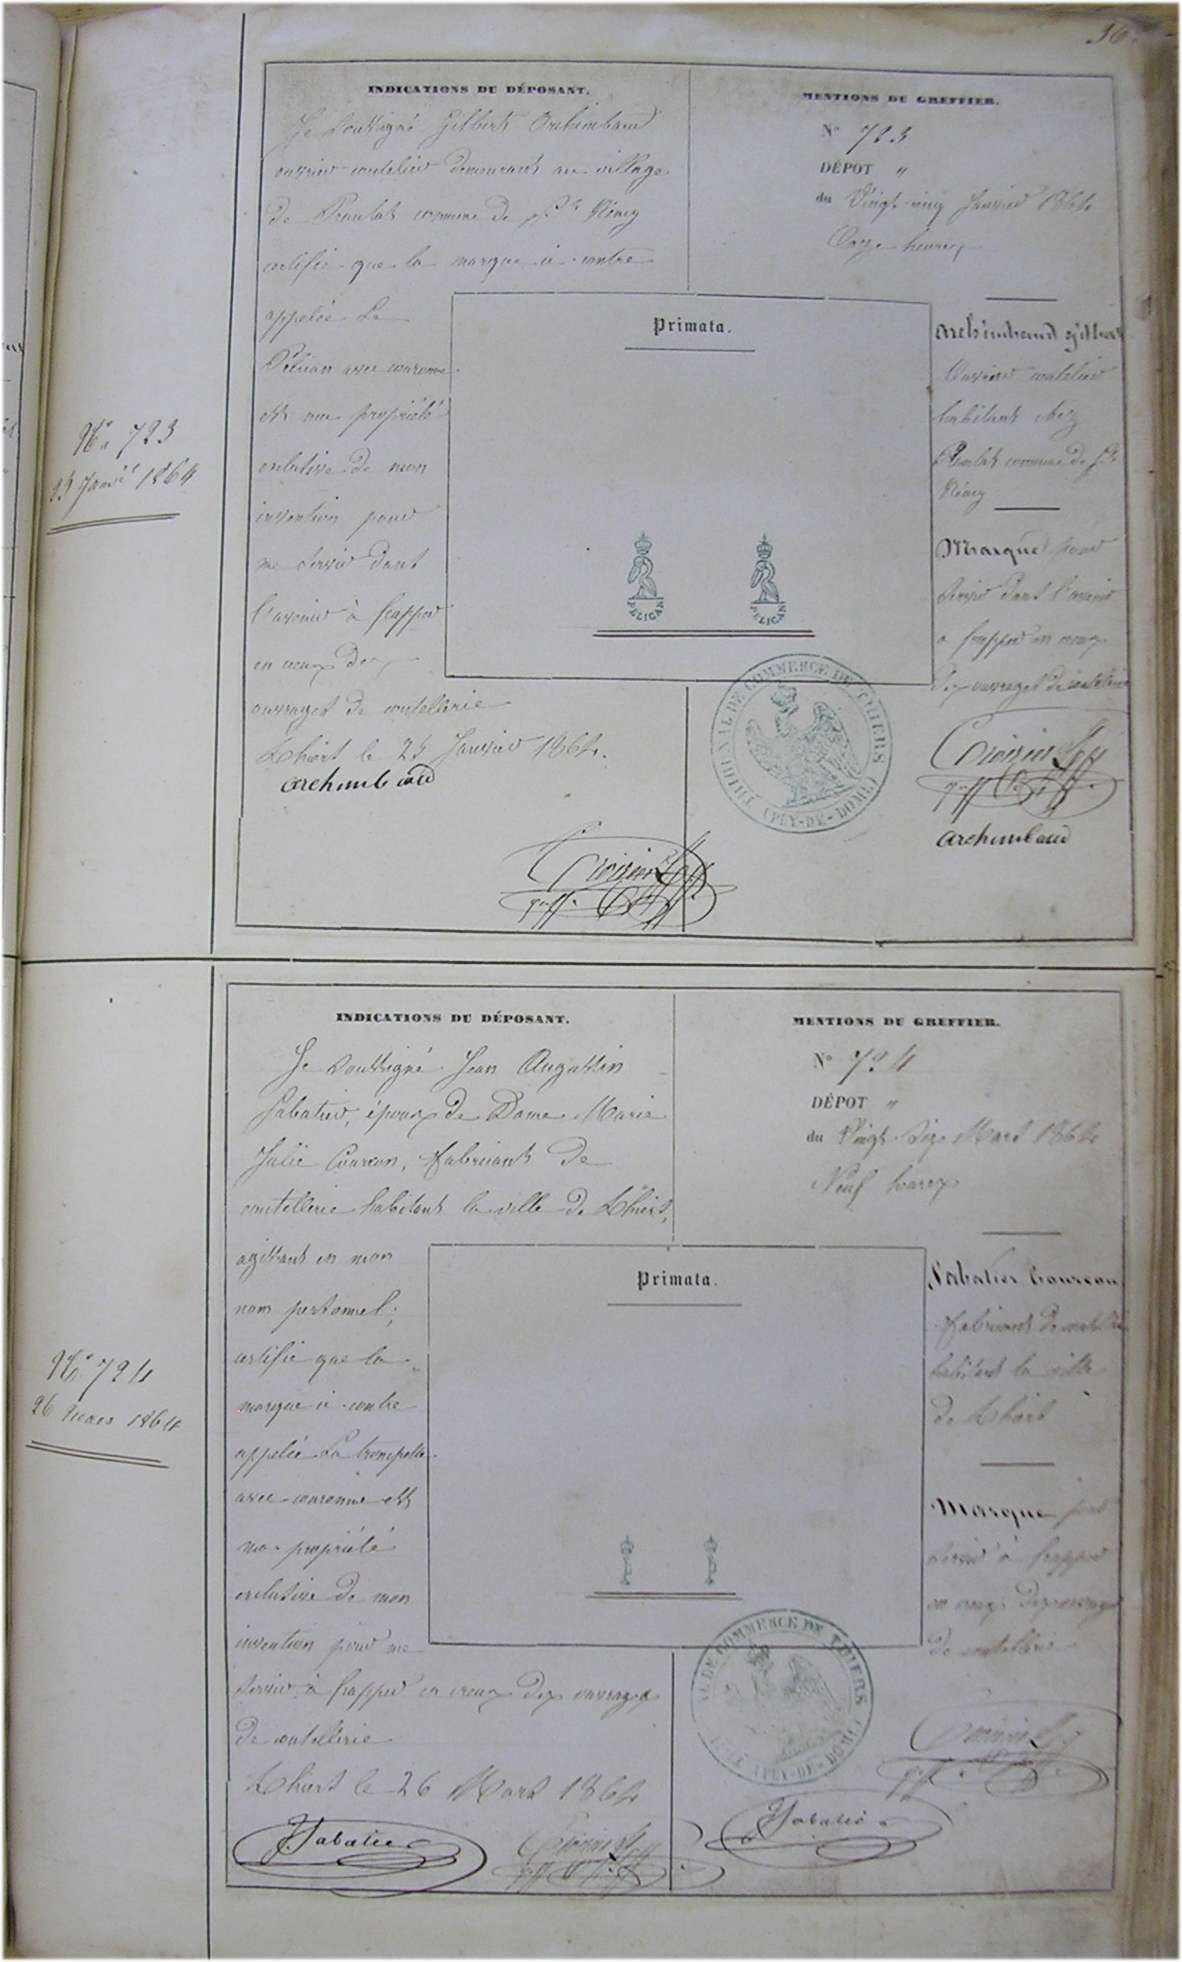 36
INDICATIONS DU DÉPOSANT.
Je soussigné Gilbert Archimbaud
ouvrier coutelier demeurant au village
de commune de St Rémy
certifie que la marque ci-contre
appelée Le
Pélican avec couronne
est ma propriété
exclusive de mon
invention pour
me servir dans
l'avenir à frapper
en creux des
ouvrages de coutellerie
Thiers le 25 Janvier 1864.
archimbaud
MENTIONS DU GREFFIER.
N° 723
DÉPOT "
du Vingt cinq Janvier 1864
Onze heures
Archimbaud gilbert
Ouvrier coutelier
habitant chez
commune de St
Rémy
Marque pour
servir dans l'avenir
a frapper en creux
des ouvrages de coutellerie
archimbaud
Primata.
PELICAN
PELICAN
TRIBUNAL DE COMMERCE DE THIERS
(PUY-DE-DOME)
N° 723
25 Janvr 1864
INDICATIONS DU DÉPOSANT.
Je soussigné Jean Augustin
Sabatier, époux de Dame Marie
Julie Courcon, fabricant de
coutellerie habitant la ville de Thiers,
agissant en mon
nom personnel;
certifie que la
marque ci-contre
appelée La trompette
avec couronne est
ma propriété
exclusive de mon
invention pour me
servir à frapper en creux des ouvrages
de coutellerie
Thiers le 26 Mars 1864
Sabatier
MENTIONS DU GREFFIER.
N° 724
DÉPOT "
du Vingt Six Mars 1864
Neuf heures
Sabatier Courcon
fabricant de coutellerie
habitant la ville
de Thiers
Marque pour
servir à frapper
en creux des ouvrages
de coutellerie
Sabatier
Primata.
DE COMMERCE DE THIERS
(PUY-DE-DOME)
N° 724
26 mars 1864